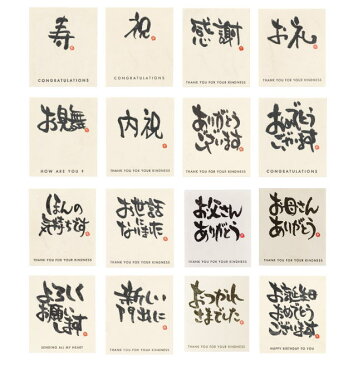 寿
CONGRATULATIONS
祝
CONGRATULATIONS
感謝
THANK YOU FOR YOUR KINDNESS
お礼
THANK YOU FOR YOUR KINDNESS
お見舞
HOW ARE YOU ?
内祝
THANK YOU FOR YOUR KINDNESS
ありがとう
ございます
THANK YOU FOR YOUR KINDNESS
おめでとう
ございます
CONGRATULATIONS
ほんの
気持ちです
THANK YOU FOR YOUR KINDNESS
お世話
になりました
THANK YOU FOR YOUR KINDNESS
お父さん
ありがとう
THANK YOU FOR YOUR KINDNESS
お母さん
ありがとう
THANK YOU FOR YOUR KINDNESS
よろしく
お願い
します
SENDING ALL MY HEART
新しい
門出に
THANK YOU FOR YOUR KINDNESS
おつかれ
さまでした
THANK YOU FOR YOUR KINDNESS
お誕生日
おめでとう
ございます
HAPPY BIRTHDAY TO YOU